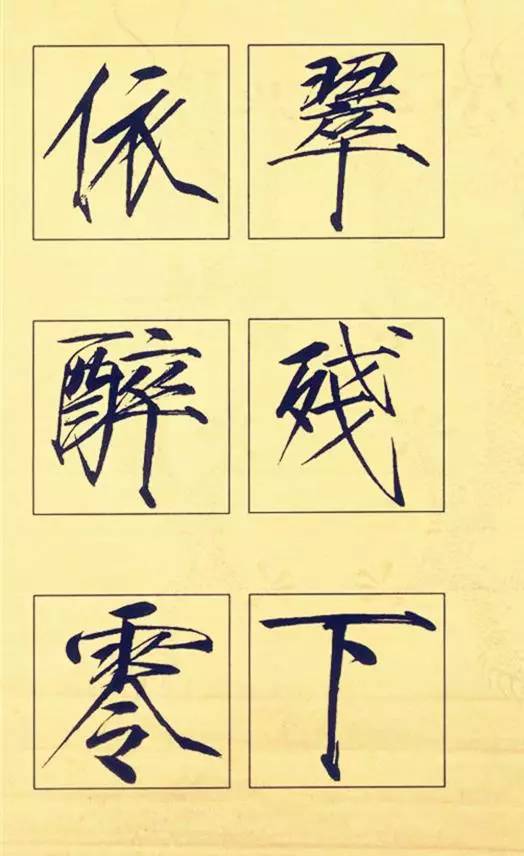 翠残下
依醉零